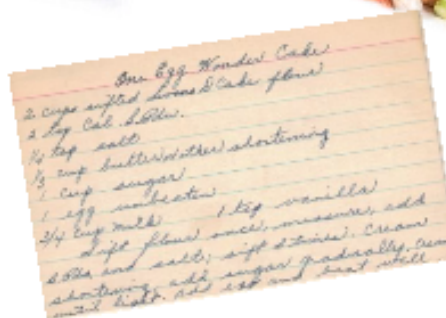 One Egg Wonder Cake
2 cups sifted Swans D Cake flour
2 tsp Cal. b. Pdr.
1/4 tsp salt
1/3 cup butter or other shortening
1 cup sugar
1 egg unbeaten
3/4 cup milk 1 tsp vanilla
Sift flour once, measure, add
b. Pdr and salt; sift 3 times. Cream
shortening, add sugar gradually, cream
until light. Add egg and beat well